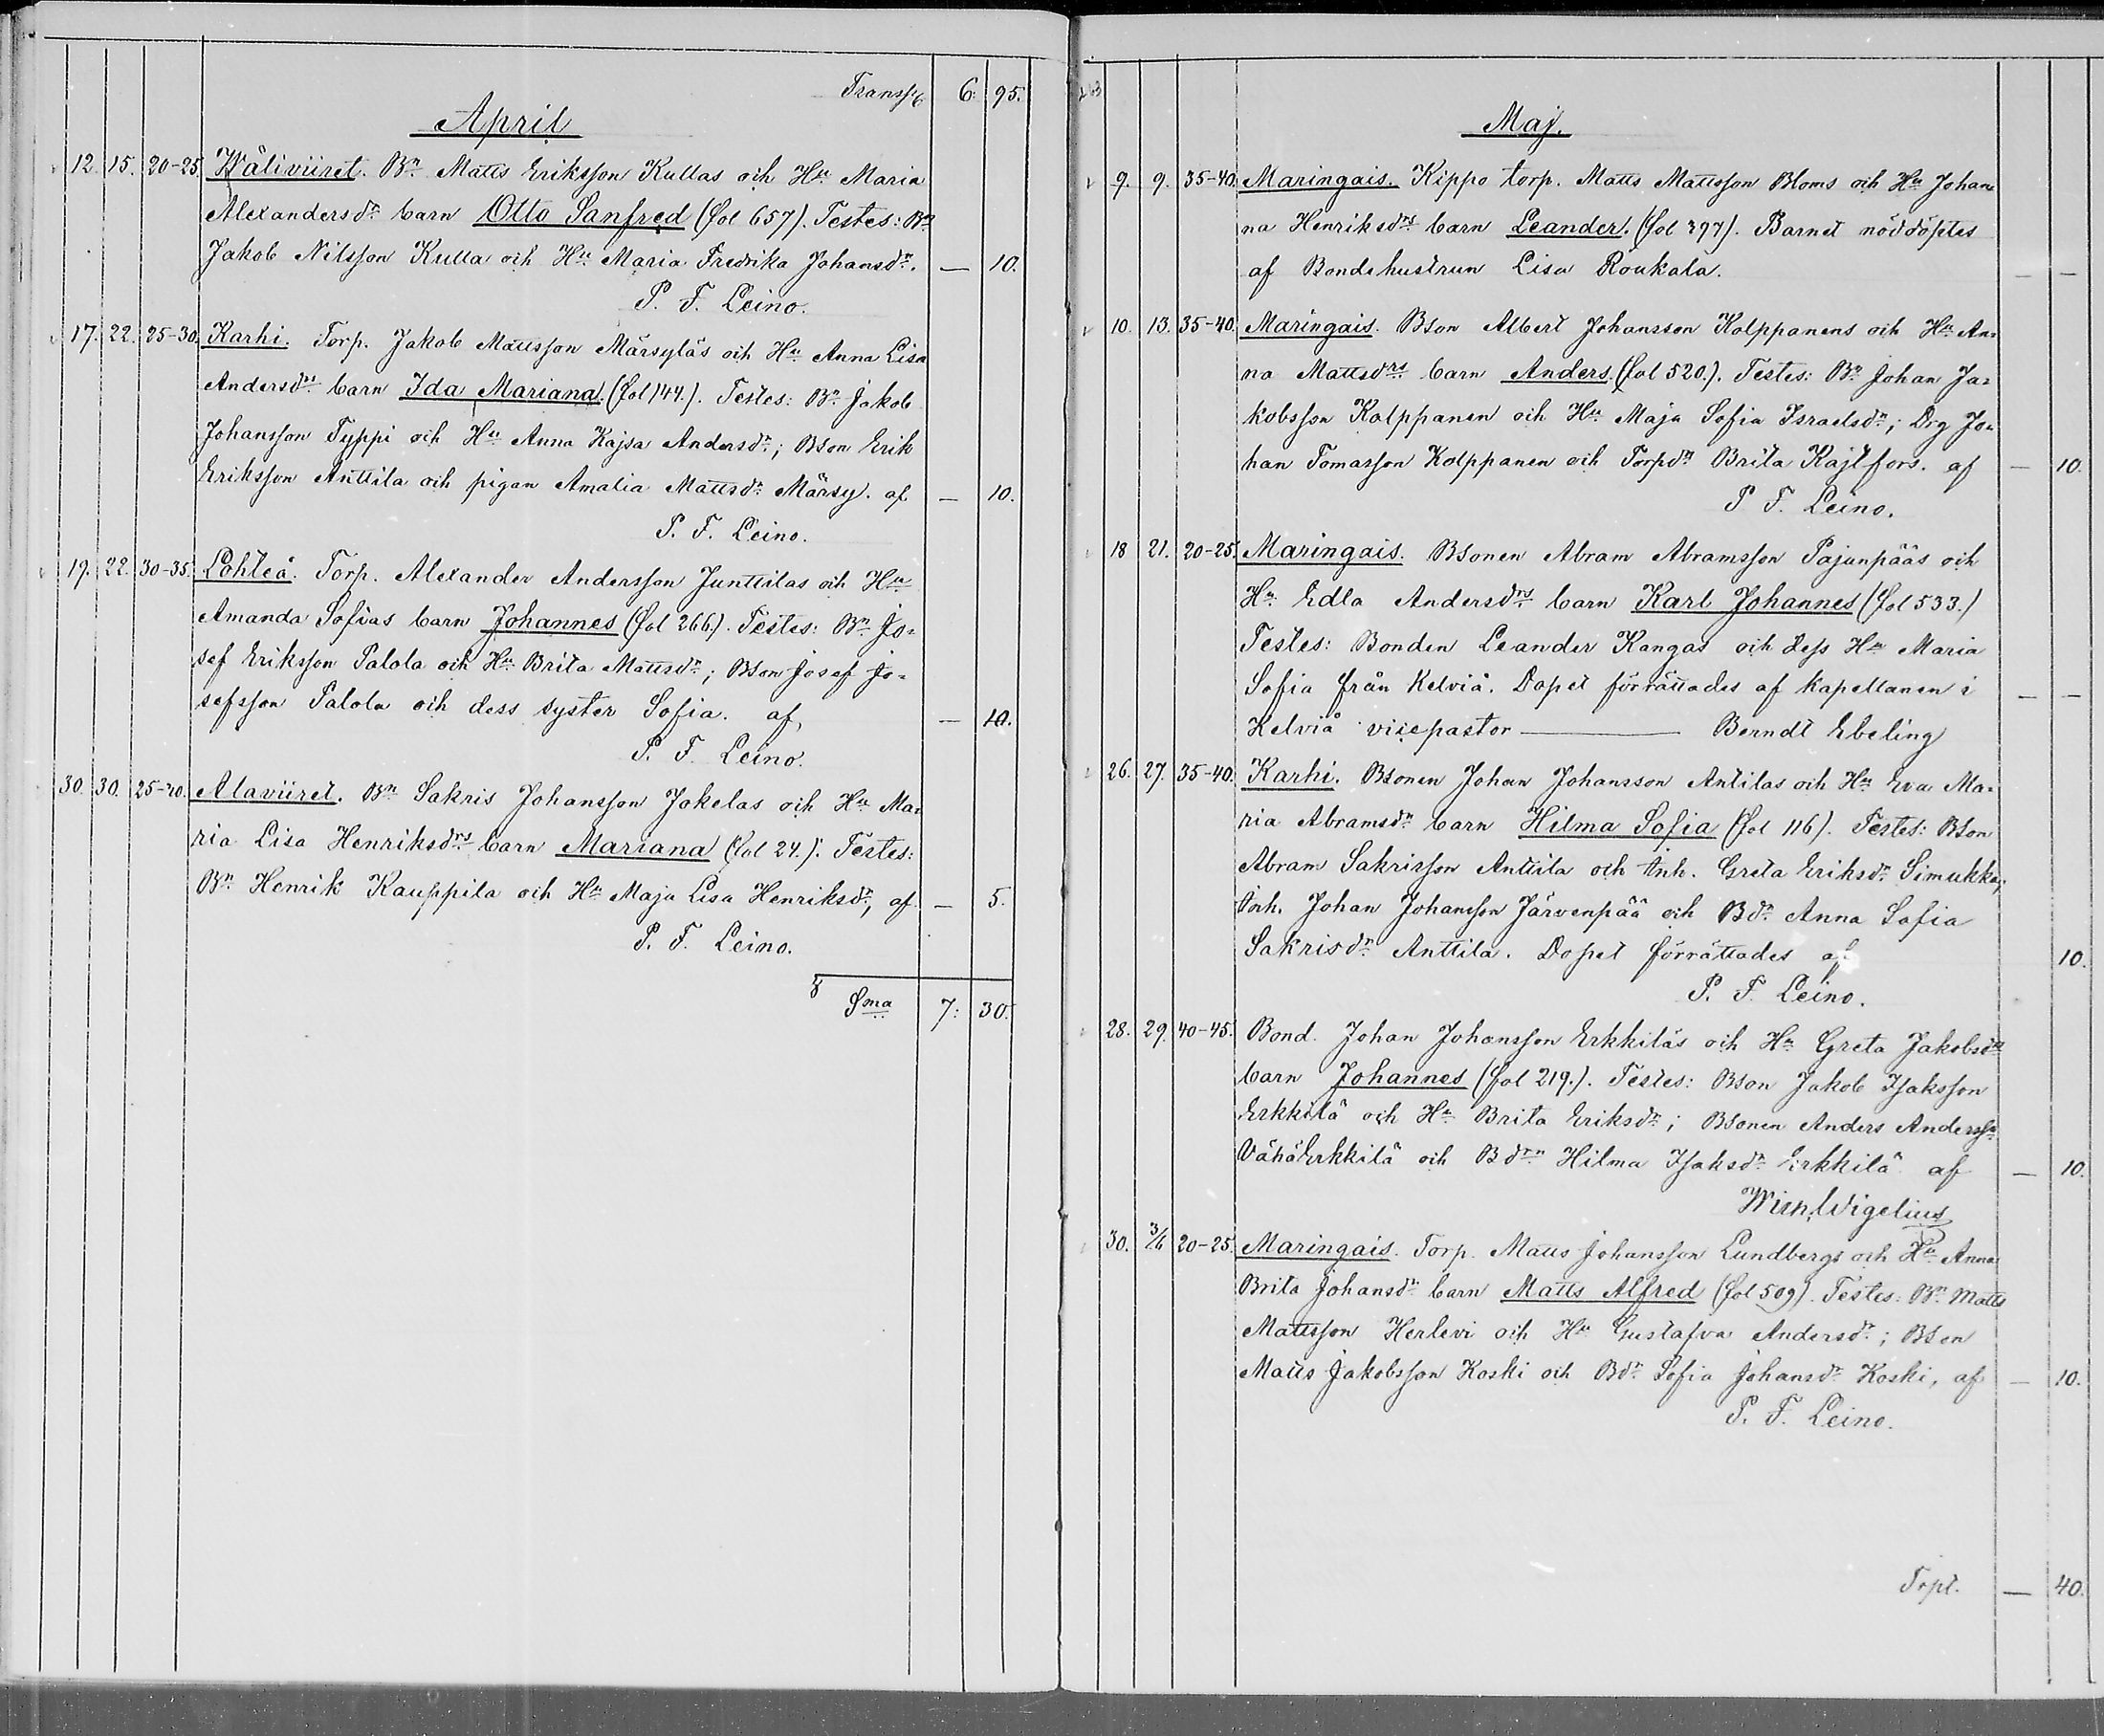 Transp. 6: 95.
April
12. 15. 20-25. Wäliviiret. Bn Matts Eriksson Kullas och Hu Maria
Alexandersdr barn Otto Sanfred (fol 657). Testes: Bn
Jakob Nilsson Kulla och Hu Maria Fredrika Johansdr. — 10.
P. F. Leino.
17. 22. 25-30. Karhi. Torp. Jakob Mattsson Märsyläs och Hu Anna Lisa
Andersdrs barn Ida Mariana. (fol 144.). Testes: Bn Jakob
Johansson Typpi och Hu Anna Kajsa Andersdr; Bson Erik
Eriksson Anttila och pigan Amalia Mattsdr Märsy. af — 10.
P. F. Leino.
19. 22. 30-35. Lohteå. Torp. Alexander Andersson Junttilas och Hu
Amanda Sofias barn Johannes (fol 266.). Testes: Bn Jo=
sef Eriksson Palola och Hu Brita Mattsdr; Bson Josef Jo=
sefsson Palola och dess syster Sofia. af, — 10.
P. F. Leino.
30. 30. 25-30. Alaviiret. Bn Sakris Johansson Jokelas och Hu Ma=
ria Lisa Henriksdrs barn Mariana (fol 24.). Testes:
Bn Henrik Kauppila och Hu Maja Lisa Henriksdr, af — 5.
P. F. Leino.
Sma 7: 30.
Maj.
9. 9. 35-40. Maringais. Kippo torp. Matts Mattsson Bloms och Hu Johan
na Henriksdrs barn Leander. (fol 397). Barnet nöddöptes
af Bondehustrun Lisa Roukala. — —
10. 13. 35-40. Maringais. Bson Albert Johansson Kolppanens och Hu An=
na Mattsdrs barn Anders. (fol 520.). Testes: Bn Johan Ja=
kobsson Kolppanen och Hu Maja Sofia Israelsdr; Drg Jo=
han Tomasson Kolppanen och Torpdn Brita Kajtfors. af — 10.
P F. Leino.
18 21. 20-25. Maringais. Bsonen Abram Abramsson Pajunpääs och
Hu Edla Andersdrs barn Karl Johannes (fol 533.)
Testes: Bonden Leander Kangas och dess Hu Maria
Sofia från Kelviå. Dopet förrättades af kapellanen i — —
Kelviå vicepastor — Berndt Ebeling
26. 27. 35-40. Karhi. Bsonen Johan Johansson Antilas och Hu Eva Ma=
ria Abramsdr barn Hilma Sofia (fol 116). Testes: Bson
Abram Sakrisson Anttila och Inh. Greta Eriksdr Simukka;
Inh. Johan Johansson Järvenpää och Bdr Anna Sofia
Sakrisdr Anttila. Dopet förrättades af 10.
P. F. Leino.
28. 29. 40-45. Bond. Johan Johansson Erkkiläs och Hu Greta Jakobsdrs
barn Johannes (fol 219.). Testes: Bson Jakob Isaksson
Erkkilä och Hu Brita Eriksdr; Bsonen Anders Anderssn
Vähäerkkilä och Bdrn Hilma Isaksdr Erkkilä af — 10.
Wigelius
30. 3/6 20-25. Maringais. Torp. Matts Johansson Lundbergs och Hu Anna
Brita Johansdr barn Matts Alfred (fol 509). Testes: Bn Matts
Mattsson Herlevi och Hu Gustafva Andersdr; Bson
Matts Jakobsson Koski och Bdr Sofia Johansdr Koski, af — 10.
P. F. Leino.
Trpt. — 40.